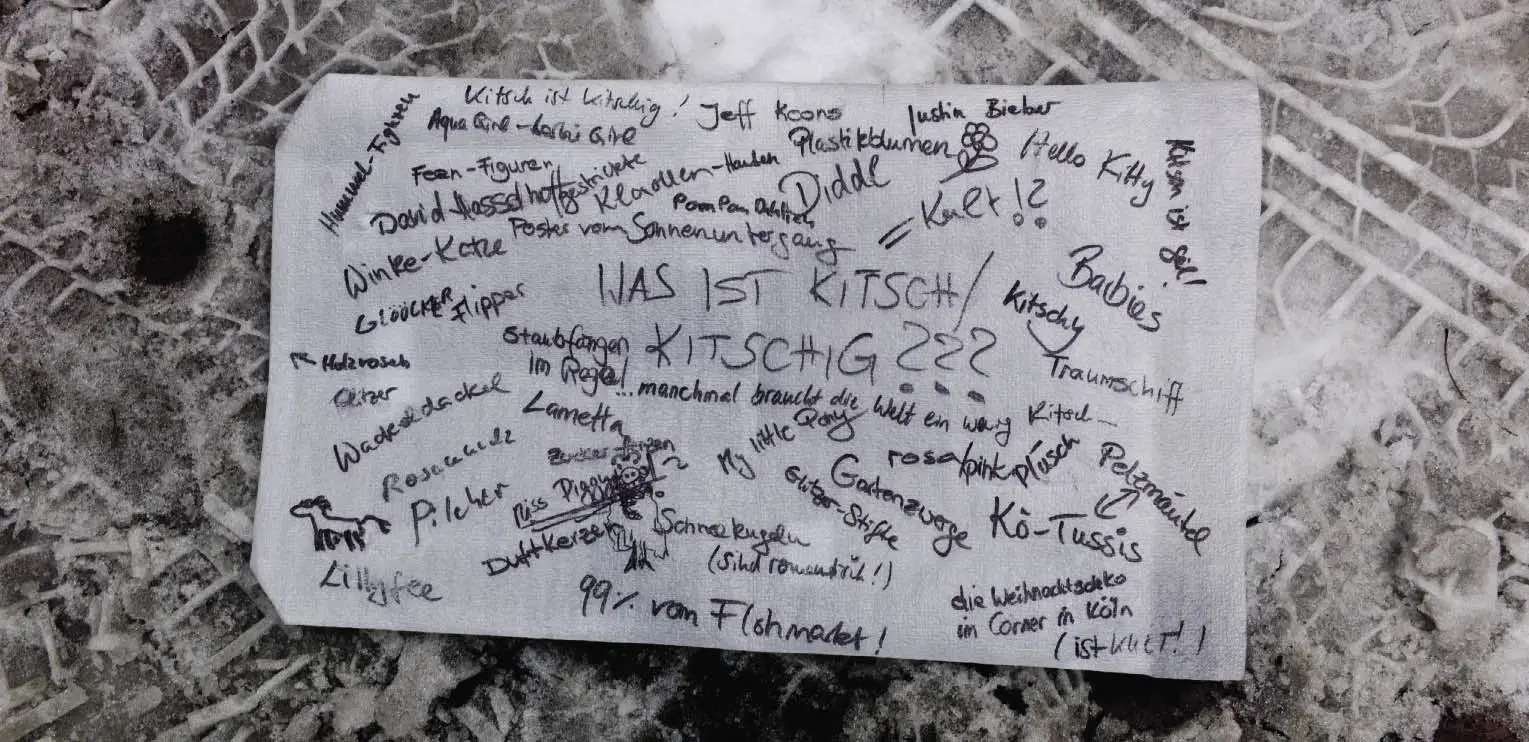 Kitsch ist kitschig!
Jeff Koons
Justin Bieber
Hummel-Figuren
Plastikblumen
Hello Kitty
Kitsch ist
Feen-Figuren
gestrickte
Klorollen-Hauben
Diddl
David Hasselhoff
= Kult!?
Poster vom Sonnenuntergang
Winke-Katze
WAS IST KITSCH/
KITSCHIG???
Barbies
GLÖÖCKLER
Flipper
Kitschy
Staubfänger
im Regal
Traumschiff
Holzrosen
Glitzer
...manchmal braucht die Welt ein wenig Kitsch
Wackeldackel
Lametta
My little Pony
rosa/pink plüsch
Pelzmäntel
Rosamunde
Pilcher
Miss Piggy
Gartenzwerge
Glitzer-Stifte
Kö-Tussis
Duftkerzen
Schneekugeln
(sind romantisch!)
Lillyfee
99% vom Flohmarkt!
die Weihnachtsdeko
im Corner in Köln
(ist KULT!)